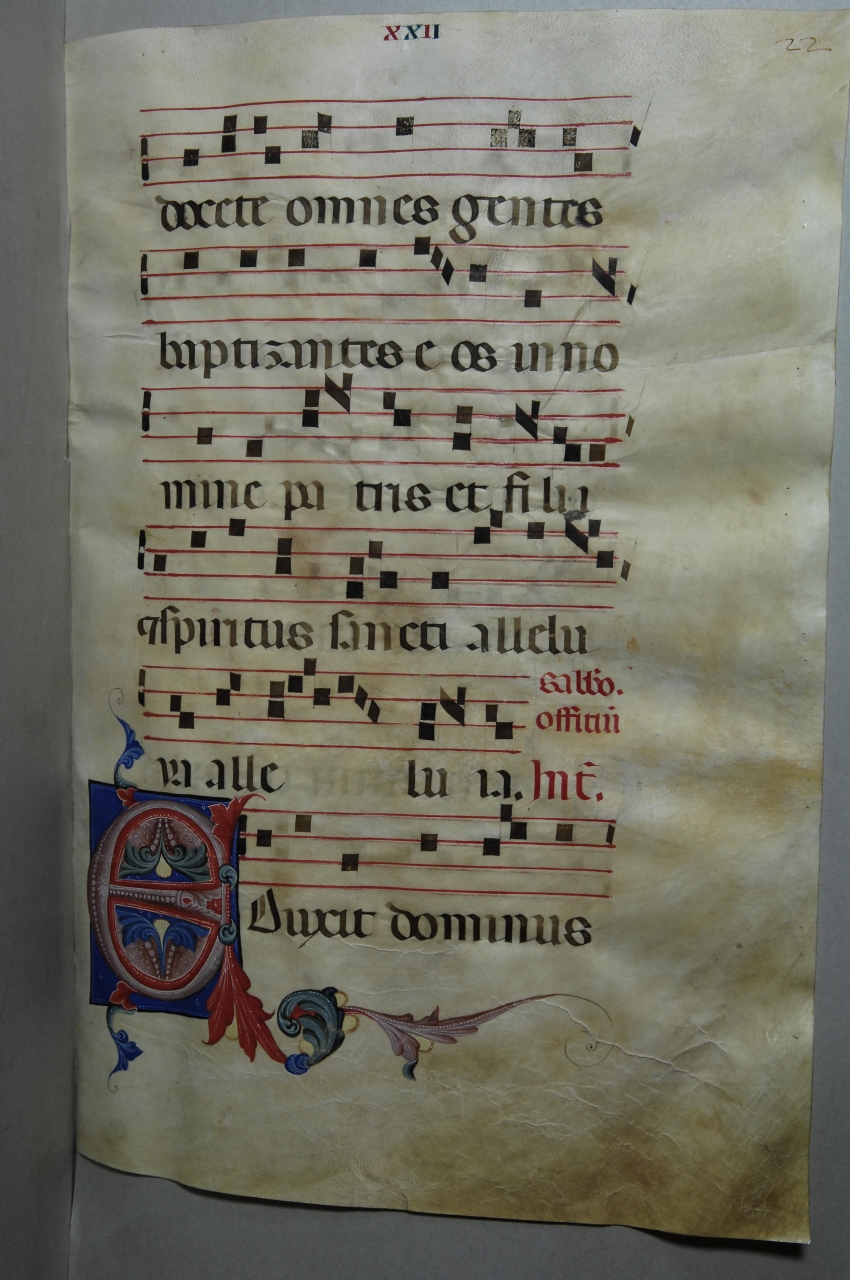 XXII
22
docete omnes gentes
baptizantes e os in no
mine pa tris et filii
⁊ spiritus sancti allelu
ia alle lu ia. Int̄.
sabbo.
offitiū
EDuxit dominus